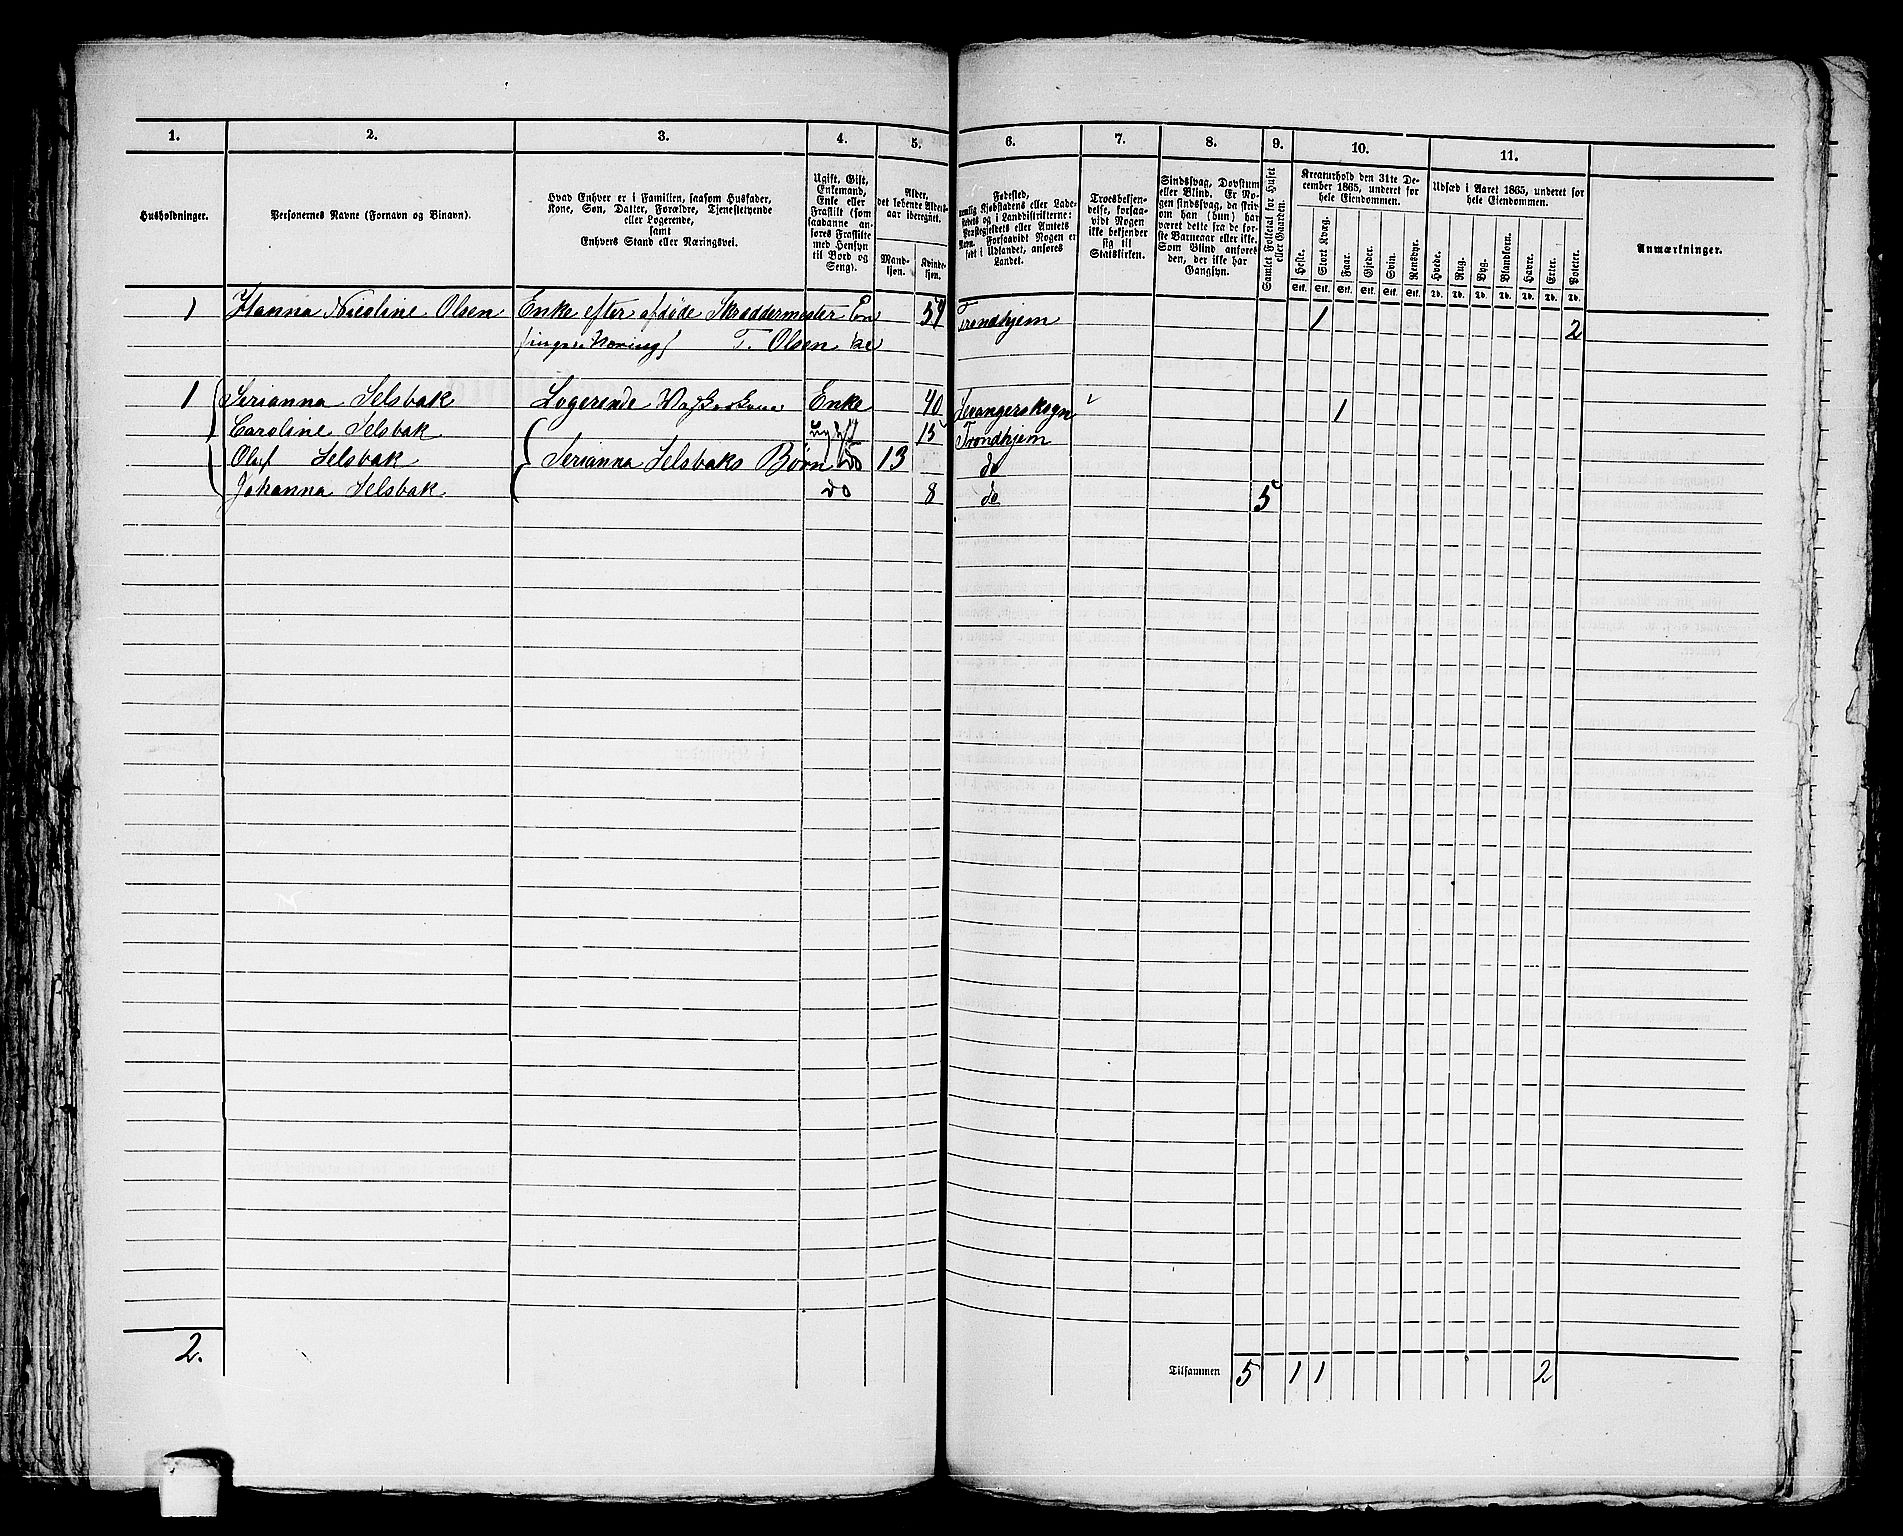 1. 2. 3. 4. 5. 6. 7. 8. 9. 10. 11.
Husholdninger.
Personernes Navne (Fornavn og Binavn).
Hvad Enhver er i Familien, saasom Husfader,
Kone, Søn, Datter, Forældre, Tjenestetyende
eller Logerende,
samt
Enhvers Stand eller Næringsvei.
Ugift, Gift,
Enkemand,
Enke eller
Fraskilt (som
saadanne an-
føres Fraskilte
med Hensyn
til Bord og
Seng).
Alder,
det løbende Alders-
aar iberegnet.
Mand-
kjøn.
Kvinde-
kjøn.
Fødested,
nemlig Kjøbstadens eller Lade-
stedets og i Landdistrikterne:
Præstegjeldets eller Amtets
Navn. Forsaavidt Nogen er
født i Udlandet, anføres
Landet.
Troesbekjen-
delse, forsaa-
vidt Nogen
ikke bekjender
sig til
Statskirken.
Sindssvag, Døvstum
eller Blind. Er No-
gen sindssvag, da skriv
om han (hun) har
været dette fra de før-
ste Barneaar eller ikke.
Som Blind anføres
den, der ikke har
Gangsyn.
Samlet Folketal for Huset
eller Gaarden.
Kreaturhold den 31te De-
cember 1865, underet for
hele Eiendommen.
Heste. Stort Kvæg. Faar. Gjeder. Svin. Rensdyr.
Stk. Stk. Stk. Stk. Stk. Stk.
Udsæd i Aaret 1865, underet for
hele Eiendommen.
Hvede. Rug. Byg. Blandkorn. Havre. Erter. Poteter.
Td. Td. Td. Td. Td. Td. Td.
Anmærkninger.
1 Hanna Nicoline Olsen Enke efter afdøde Skræddermester En 54 Trondhjem 1 2
(ingen Næring) T. Olsen ke
1 Serianna Selsbak Logerende Enke 40 Levangerskogn 1
Caroline Selsbak 15 Trondhjem
Oluf Selsbak Serianna Selsbaks Børn Do 13 do
Johanna Selsbak do 8 do 5
2. Tilsammen 5 1 1 2